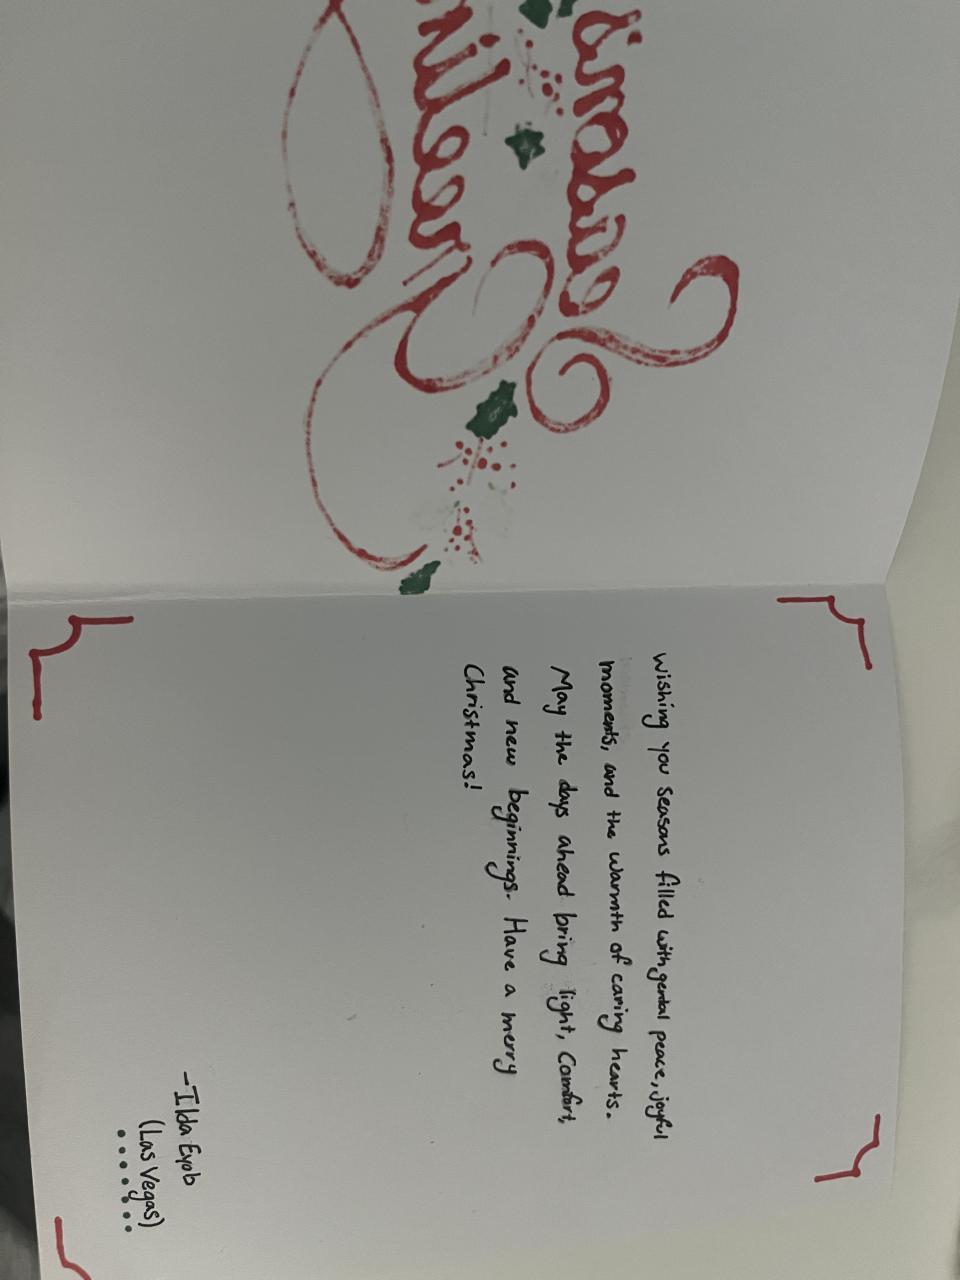 Wishing you Seasons filled with gental peace, joyful
moments, and the warmth of caring hearts.
May the days ahead bring light, Comfort,
and new beginnings. Have a merry
Christmas!
-Ilda Eyob
(Las Vegas)